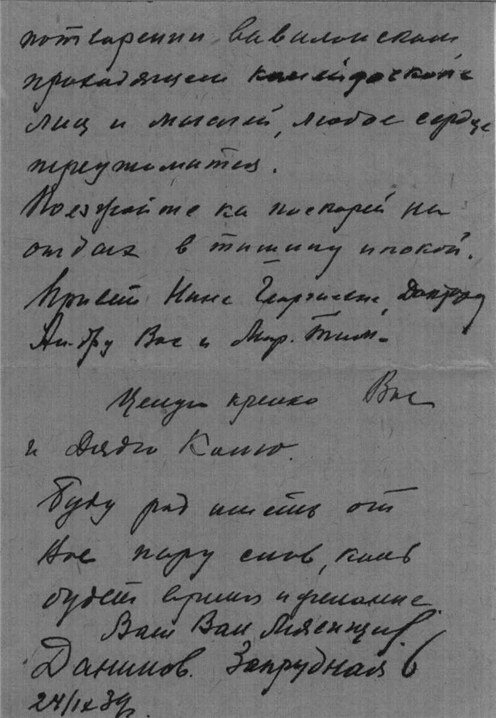 потварении вавилонском
проходящем калейдоскопе
лиц и мыслей, любое сердце
переутомится.
Поезжайте ка поскорей на
отдых в тишину и покой.
Привет Нине Георгиевне,
Ал-дру Вас и Мар. Тим.
Целую крепко Вас
и Дядю Колю.
Буду рад иметь от
Вас пару слов, коль
будет время и желание.
Ваш Ван
Данилов. Запрудная 6
24/IX 39.